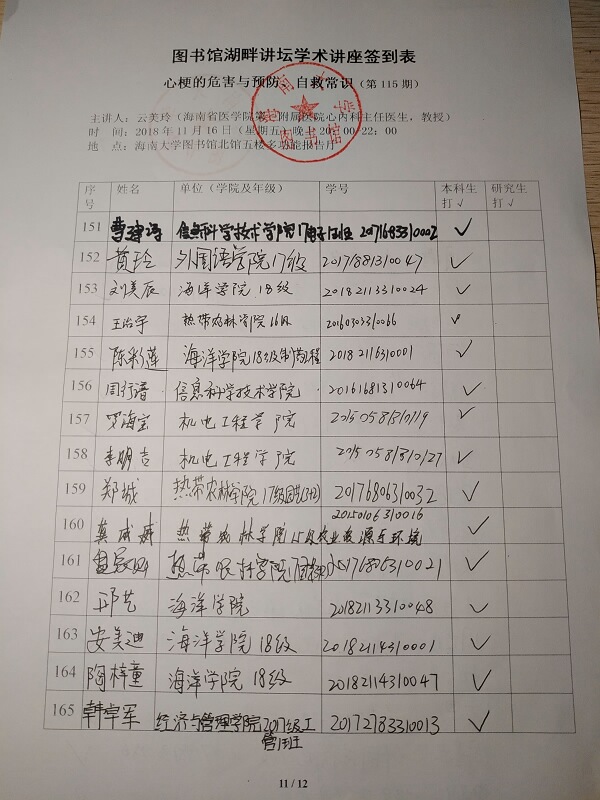 图书馆湖畔讲坛学术讲座签到表
心梗的危害与预防、自救常识（第 115 期）
主讲人：云美玲（海南省医学院第 附属医院心内科主任医生，教授）
时 间：2018 年 11 月 16 日（星期五）晚 20：00-22：00
地 点：海南大学图书馆北馆五楼多功能报告厅
序号 姓名 单位（学院及年级） 学号 本科生打√ 研究生打√
151 信息科学技术学院17电子 20171683310002 √
152 黄玲 外国语学院17级 20171881310047 √
153 刘美辰 海洋学院18级 20182113310024 √
154 王治宇 热带农林学院16级 20160303310066 √
155 陈彩莲 海洋学院18级制药工程 20182116310001 √
156 周行谱 信息科学技术学院 20161681310064 √
157 罗海宝 机电工程学院 20150581310119 √
158 李明吉 机电工程学院 20150581310127 √
159 郑城 热带农林学院17级园艺(3+2) 20176806310032 √
20150106310016
160 莫成威 热带农林学院15级农业资源与环境 √
161 热带农林学院17 20176806310021 √
162 邢艺 海洋学院 20182113310048 √
163 安美迪 海洋学院18级 20182114310001 √
164 陶梓童 海洋学院18级 20182114310047 √
165 韩卓军 经济与管理学院2017级工 20172783310013 √
管1班
11 / 12